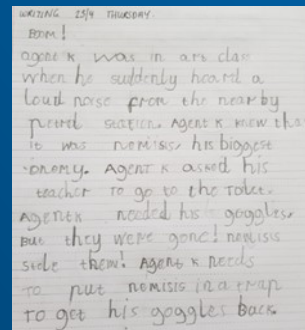 WRITING 25/9 THURSDAY.
BOOM!
agent K was in art clas
when he suddenly heard a
loud noise from the near by
petrol station. Agent K knew tha
it was nemisis, his biggest
enemy. AGENT K asked his
teacher to go to the toilet.
AGENTK needed his goggles,
But they were gone! nemisis
stole them! Agent K needs
to put nemisis in a trap
to get his goggles back.